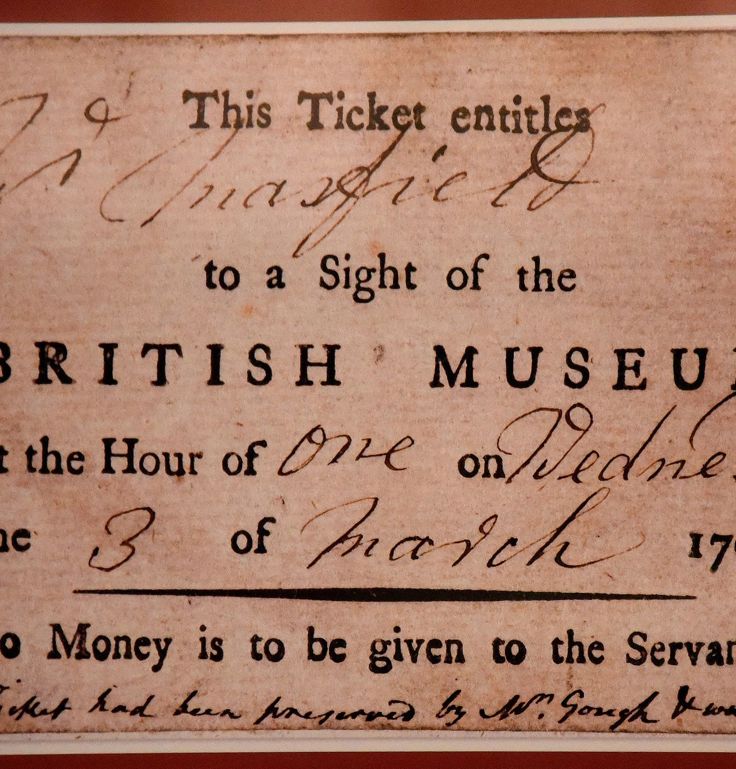 This Ticket entitles
Maxfield
to a Sight of the
BRITISH MUSEU
t the Hour of One on Wednes
he 3 of March 17
o Money is to be given to the Servan
Ticket had been preserved by Mr. Gough &